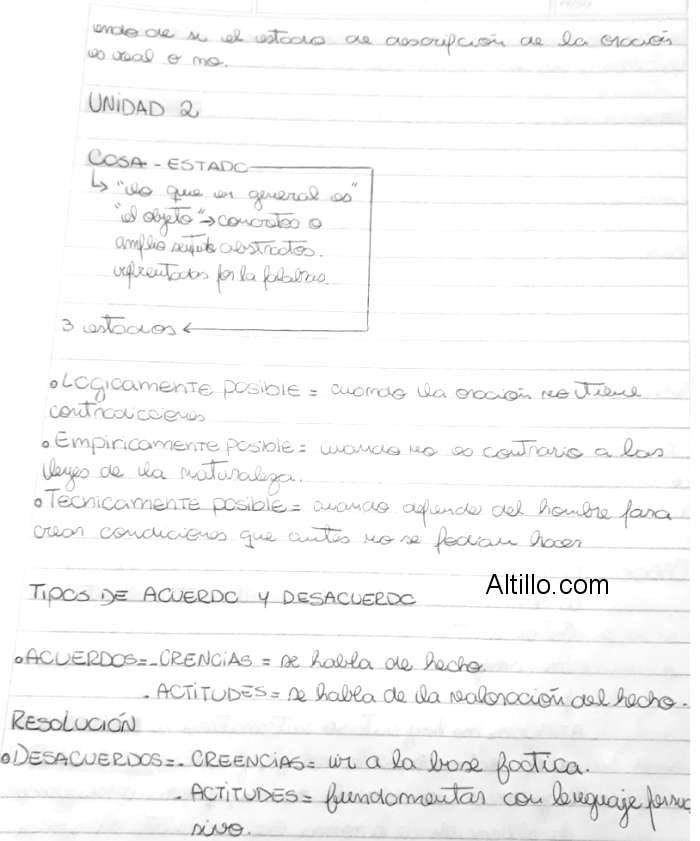 endo de si el estado de descripción de la oración
es real o no.
UNIDAD 2
COSA - ESTADO
↳ "lo que en general es"
"el objeto" → concretos o
amplio sentido abstractos.
representados por la palabras.
3 estados ←
• Lógicamente posible = cuando la oración no tiene
contradicciones
• Empíricamente posible = cuando no es contrario a las
leyes de la naturaleza.
• Técnicamente posible = cuando depende del hombre para
crear condiciones que antes no se podian hacer
Altillo.com
TIPOS DE ACUERDO Y DESACUERDO
• ACUERDOS = - CRENCIAS = se habla de hecho.
. ACTITUDES = se habla de la valoración del hecho.
RESOLUCIÓN
• DESACUERDOS = - CREENCIAS = ir a la base factica.
. ACTITUDES = fundamentar con lenguaje persua
sivo.